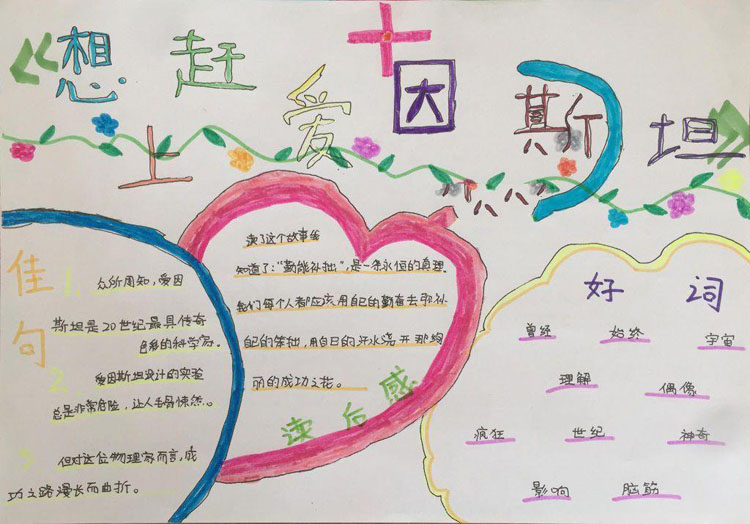 《想赶上爱因斯坦》
佳句
1. 众所周知,爱因
斯坦是20世纪最具传奇
色彩的科学家。
2 爱因斯坦设计的实验
总是非常危险,让人毛骨悚然。
3 但对这位物理家而言,成
功之路漫长而曲折。
读了这个故事我
知道了:“勤能补拙”,是一条永恒的真理。
我们每个人都应该用自己的勤奋去弥补
自己的笨拙,用自己的汗水浇开那绚
丽的成功之花。
读后感
好词
曾经 始终 宇宙
理解 偶像
疯狂 世纪 神奇
影响 脑筋